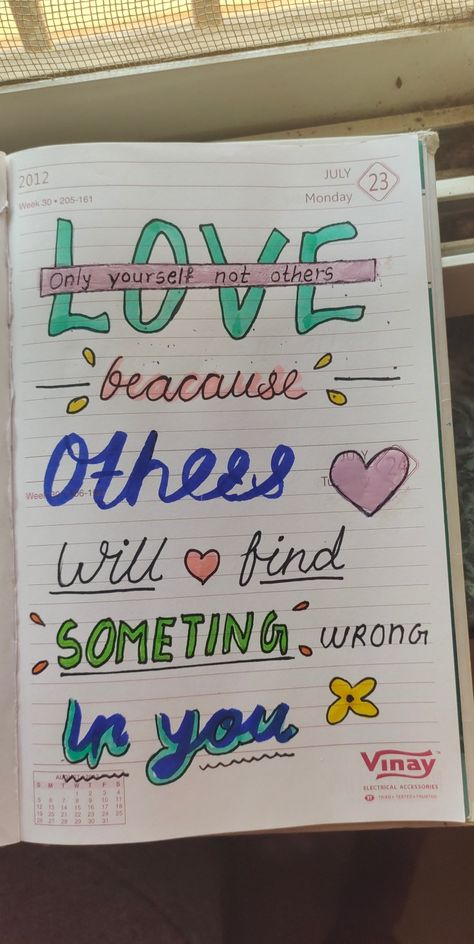 2012
JULY 23
Week 30 • 205-161
Monday
LOVE
Only yourself not others
beacause
Others
will find
SOMETING WRONG
In you
Vinay
ELECTRICAL ACCESSORIES
TRIED • TESTED • TRUSTED
S M T W T F S
1 2 3 4
5 6 7 8 9 10 11
12 13 14 15 16 17 18
19 20 21 22 23 24 25
26 27 28 29 30 31